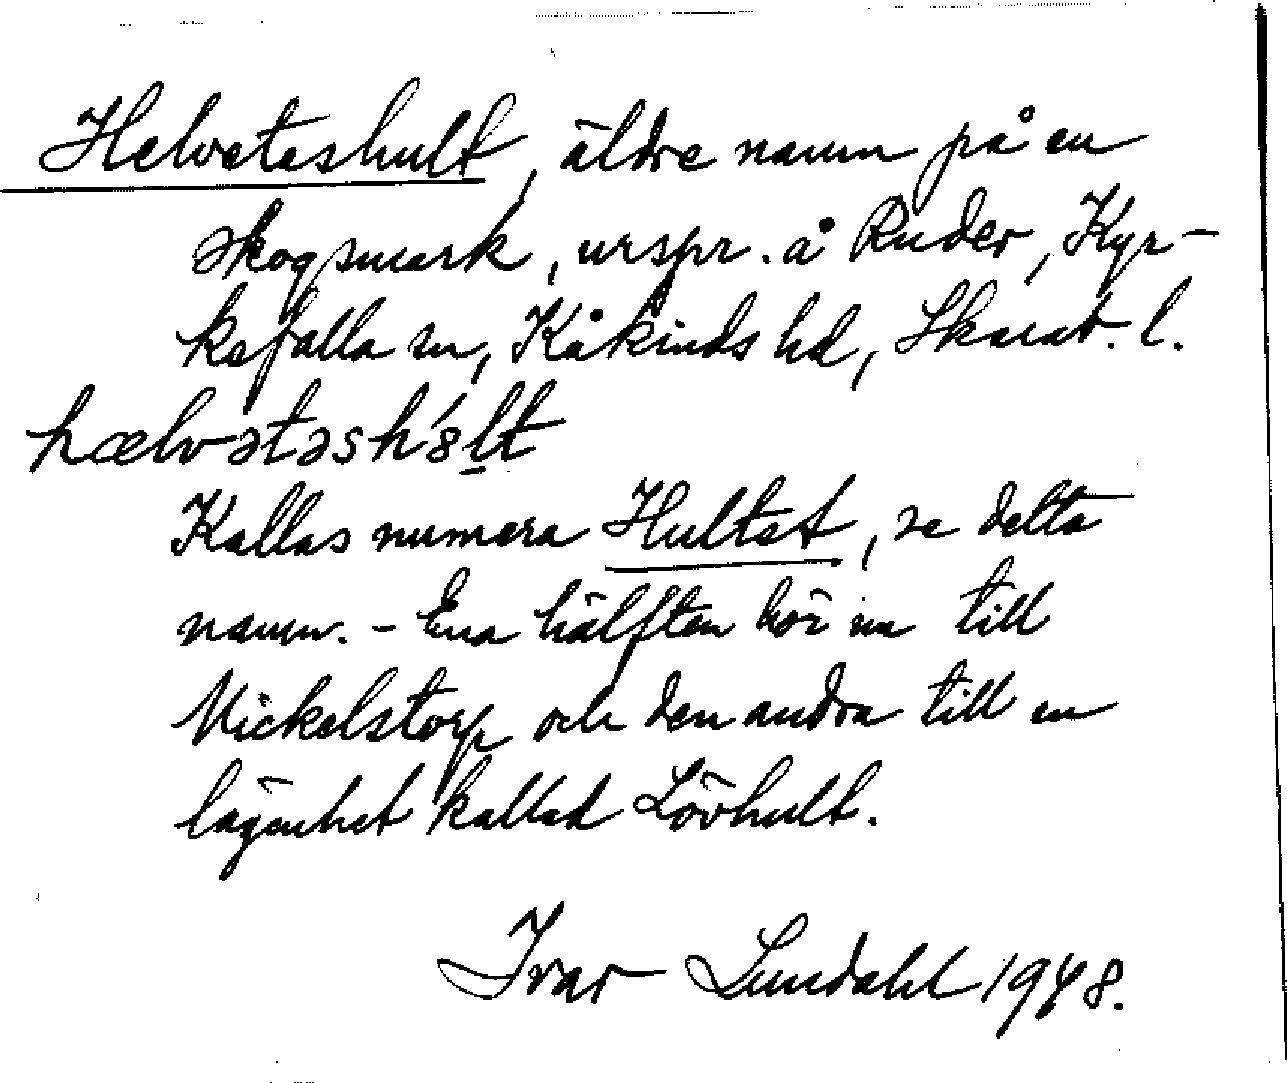 Helveteshult, äldre namn på en
skogsmark, urspr. å Ruder, Kyr-
kefalla sn, Kåkinds hd, Skarab. l.
hælvətəsh'8lt
Kallas numera Hultet, se detta
namn. - Ena hälften hör nu till
Mickelstorp och den andra till en
lägenhet kallad Lövhult.
Ivar Lundahl 1948.